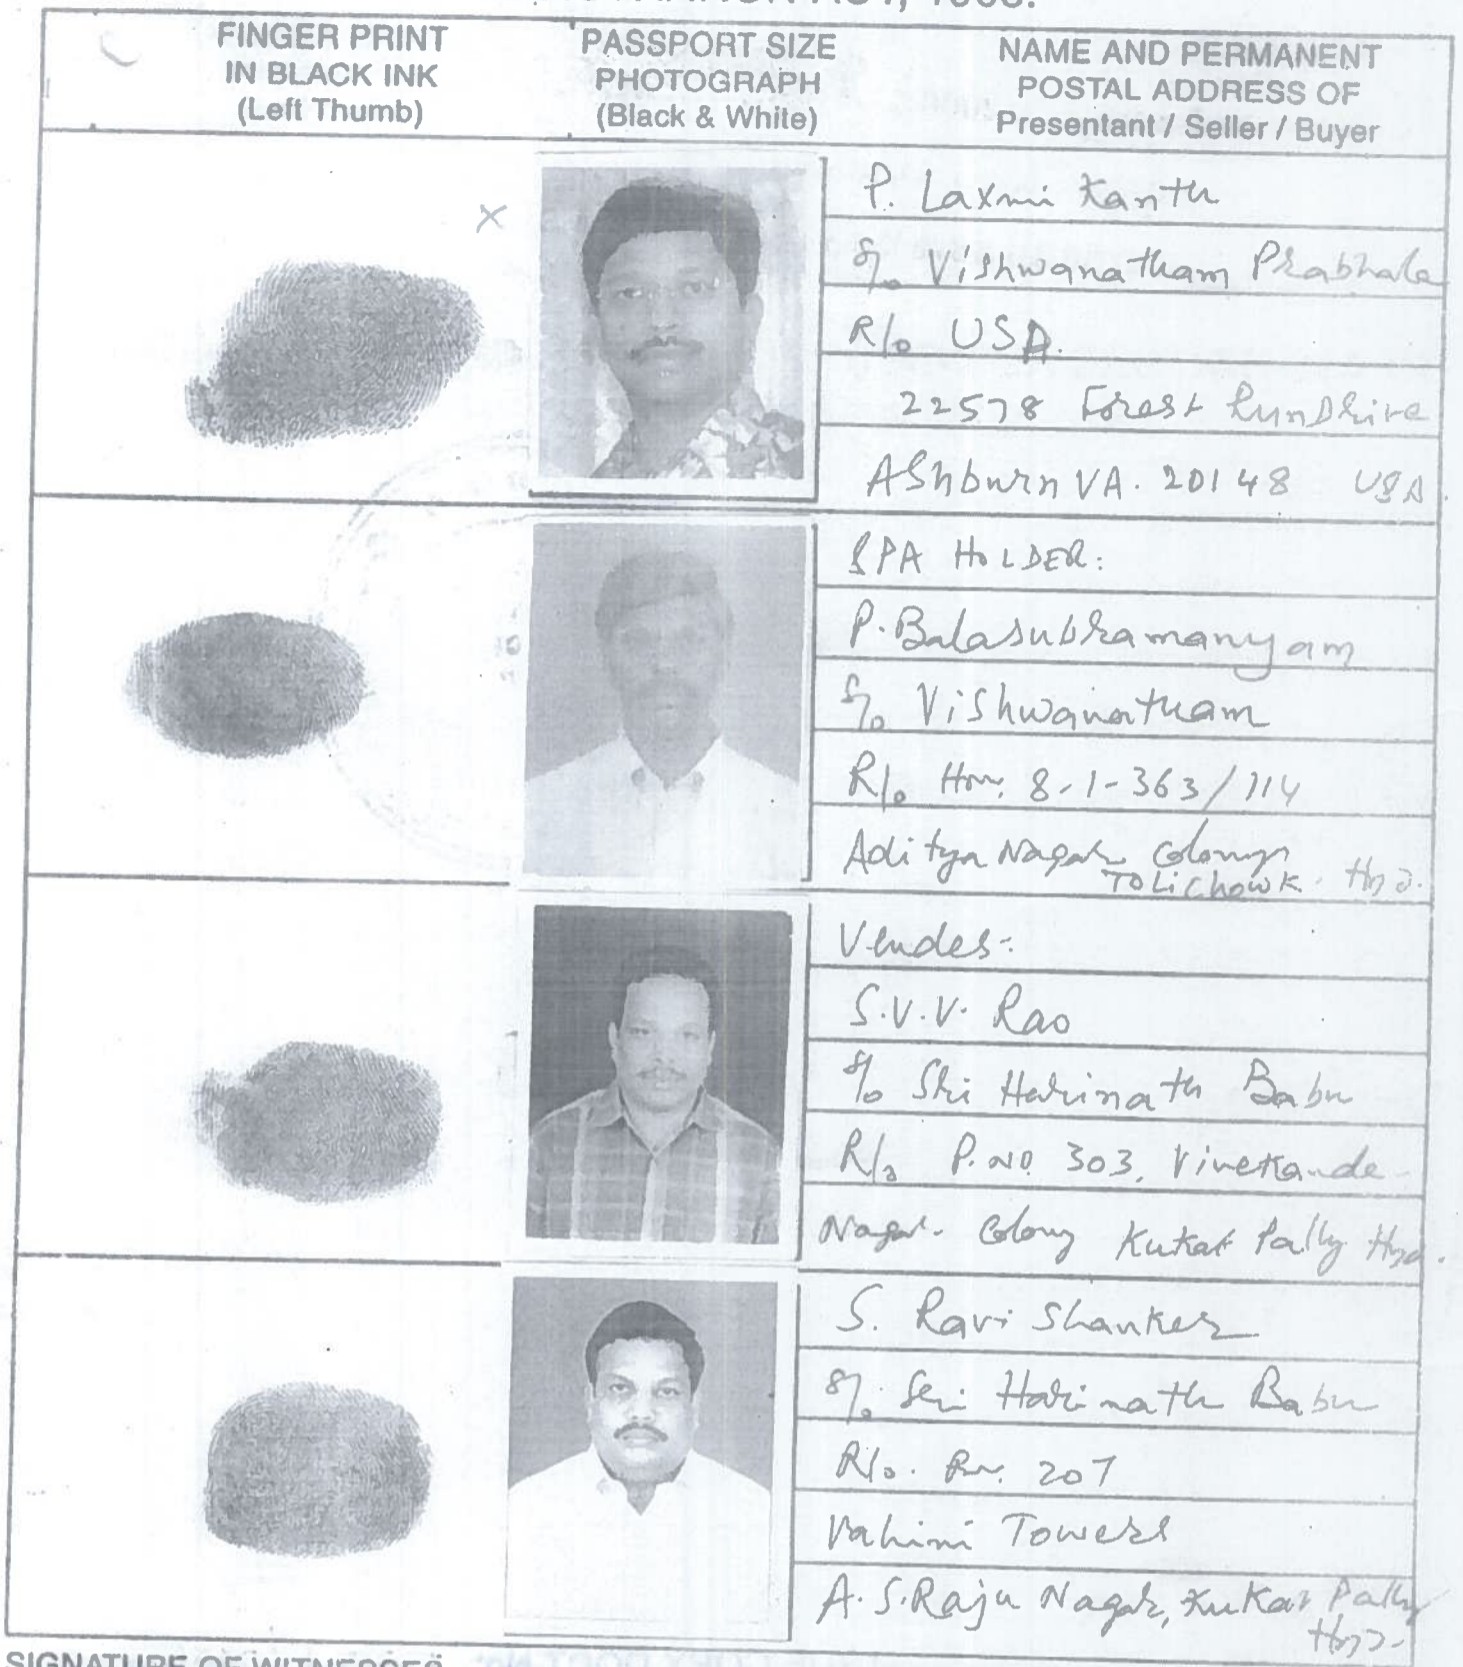 FINGER PRINT
IN BLACK INK
(Left Thumb)
PASSPORT SIZE
PHOTOGRAPH
(Black & White)
NAME AND PERMANENT
POSTAL ADDRESS OF
Presentant / Seller / Buyer
P. Laxmi Kanth
S/o Vishwanatham Prabhala
R/o USA.
22578 Forest Run Drive
AShburn VA. 20148 USA.
SPA HOLDER:
P. Balasubramanyam
S/o Vishwanatham
R/o Hno. 8-1-363/114
Aditya Nagar Colony
TOLichowk. Hyd.
S.V.V. Rao
S/o Sri Harinath Babu
R/o P.NO. 303, Vivekanda
Nagar Colony Kukat Pally Hyd.
S. Ravi Shanker
S/o. Sri Harinath Babu
R/o. 207
Vahini Towers
A.S. Raju Nagar, Kukat Pally
Hyd.
SIGNATURE OF WITNESSES